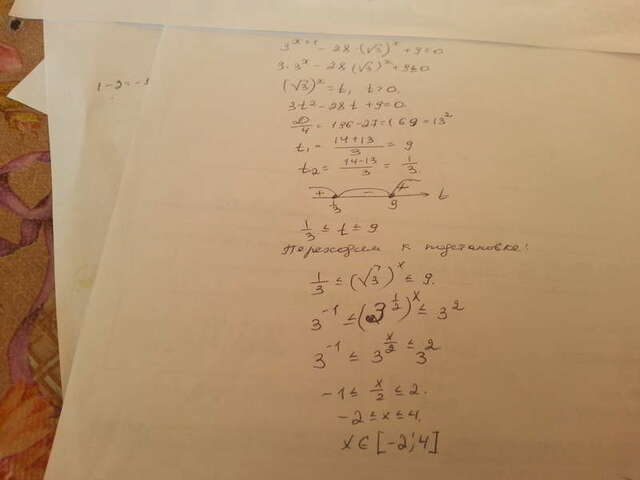 3^(x+1) - 28·(√3)^x + 9 = 0
3·3^x - 28(√3)^x + 9 ≤ 0
(√3)^x = t, t > 0.
3t² - 28t + 9 = 0.
D/4 = 196 - 27 = 169 = 13²
t₁ = (14+13)/3 = 9
t₂ = (14-13)/3 = 1/3.
+ - + t
1/3 9
1/3 ≤ t ≤ 9
Переходим к подстановке:
1/3 ≤ (√3)^x ≤ 9.
3^(-1) ≤ (3^(1/2))^x ≤ 3²
3^(-1) ≤ 3^(x/2) ≤ 3²
-1 ≤ x/2 ≤ 2.
-2 ≤ x ≤ 4.
x ∈ [-2; 4]
1-2=-1